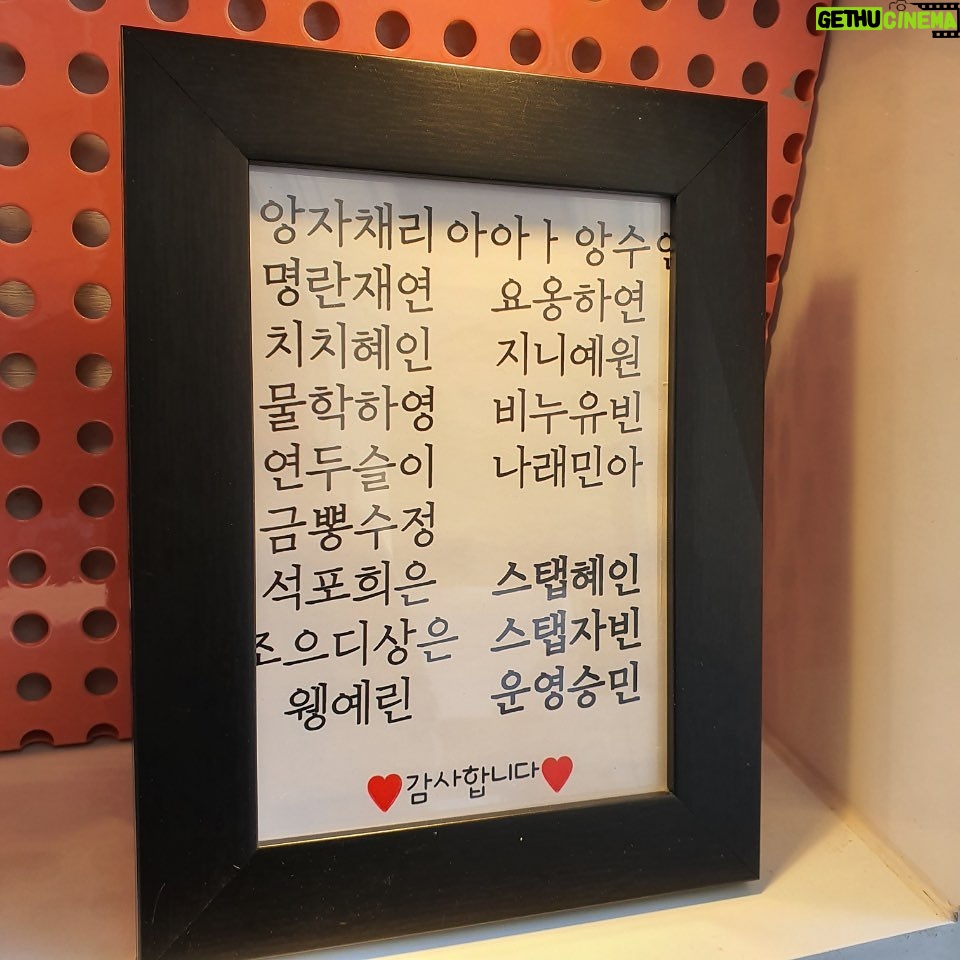 GETHUCINEMA
앙자채리 아아ㅏ 앙수
명란재연 요옹하연
치치혜인 지니예원
물학하영 비누유빈
연두슬이 나래민아
금뽕수정
석포희은 스탭혜인
조으디상은 스탭자빈
웽예린 운영승민
♥감사합니다♥